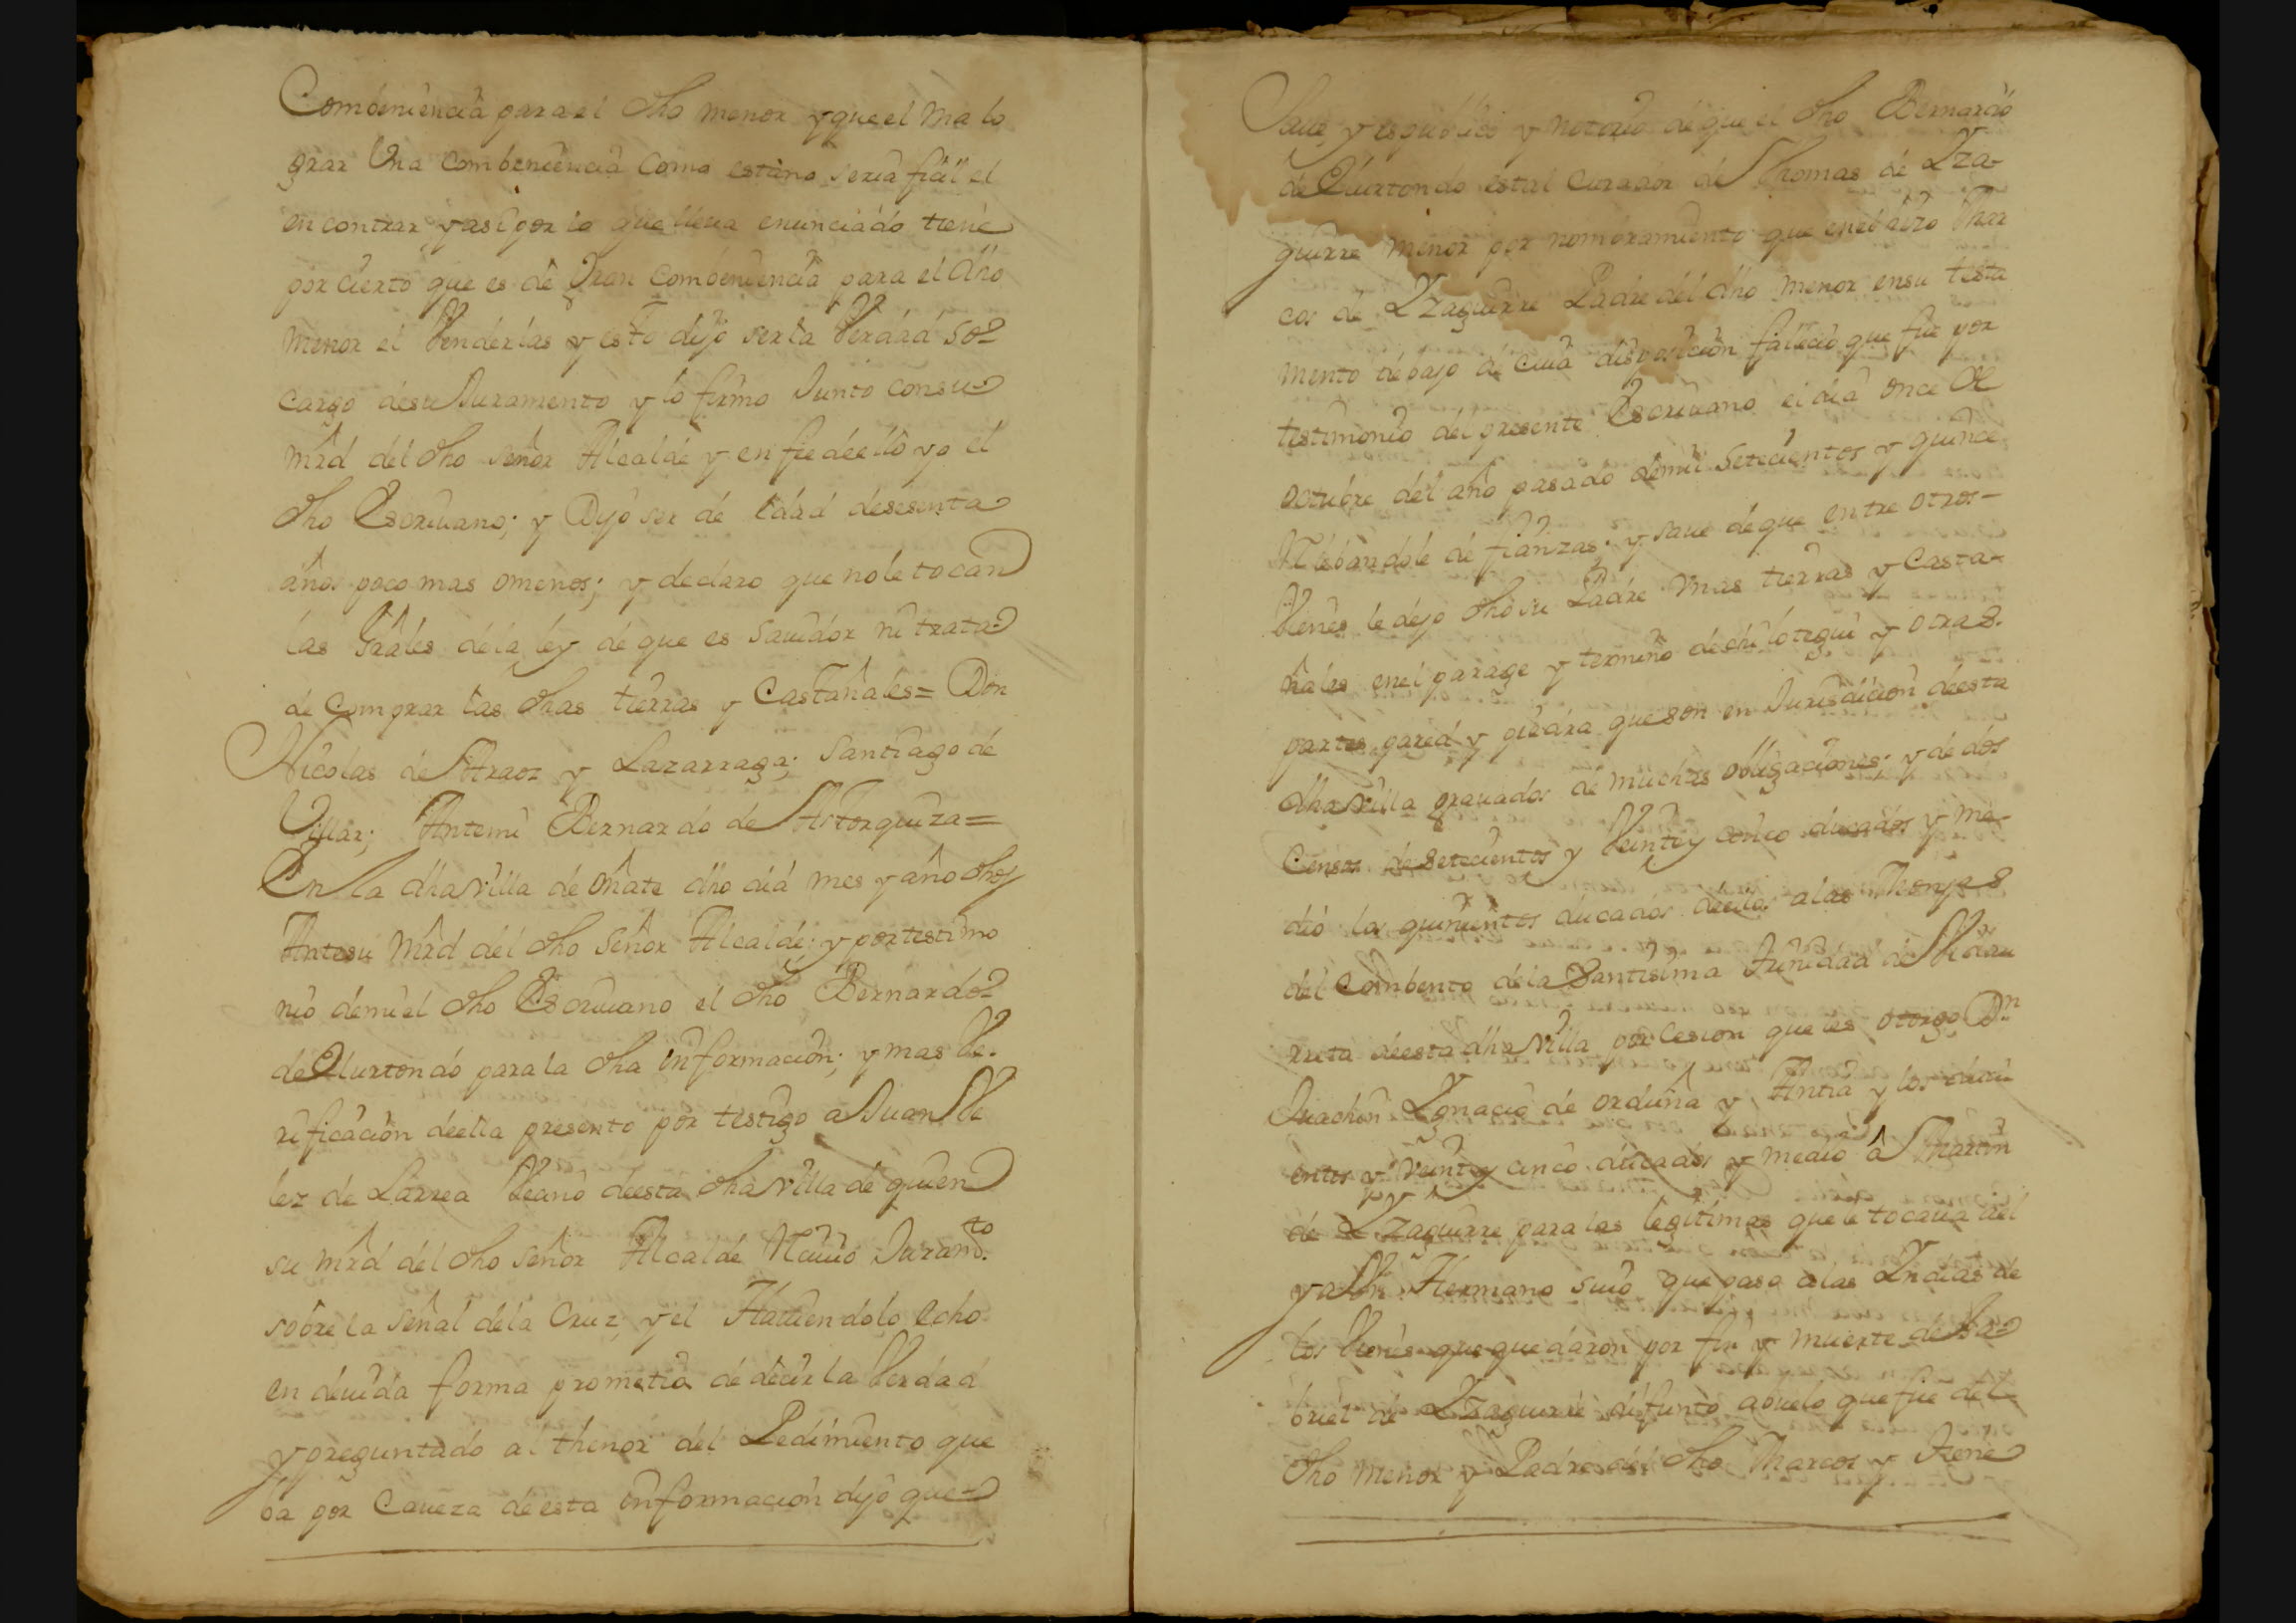 Combeniencia para el dho menor y que el malo
grar Una combeniencia como esta no seria ficil el
en contrar y asi por lo que lleua enunciado tiene
por cierto que es de Gran combeniencia para el dho
menor el Venderlas y esto dijo ser la Verdad so
cargo de su Juramento y lo firmo Junto con su
mrd del dho señor Alcalde y en fee de ello yo el
dho Escriuano; y Dijo ser de edad de sesenta
años poco mas o menos; y declaro que no le tocan
las Grales de la ley de que es sauidor ni trata
de comprar las dhas tierras y Castañales = Don
Nicolas de Araoz y Lazarraga; Santiago de
Villar; Antemi Bernardo de Astorquiza =
En la dha Villa de oñate dho dia mes y año dhos
Ante su mrd del dho señor Alcalde; y por testimo
nio de mi el dho Escriuano el dho Bernardo
de Olurtondo para la dha informacion; y mas Ve
rificacion de ella presento por testigo a Juan Ve
lez de Larrea Vecino de esta dha Villa de quien
su mrd del dho señor Alcalde Reciuio Juramto
sobre la señal de la Cruz, y el Hauiendolo echo
en deuida forma prometio de decir la Verdad
y preguntado al thenor del Pedimiento que
ba por Caueza de esta informacion dijo que
Saue, y es publico y notorio de que el dho Bernardo
de Olurtondo estal Curador de Thomas de Yza
guirre menor por nombramiento que en el hizo Mar
cos de Yzaguirre Padre del dho menor en su testa
mento debajo de cuia disposicion falecio que fue por
testimonio del presente Escriuano el dia once de
octubre del año pasado de mil Setecientos y quince
Relebandole de fianzas; y saue de que entre otros
Vienes le dejo dho su Padre mas tierras y Casta
ñales en el parage y termino de chilotegui y otras
partes, pared y que son en Jurisdicion de esta
dha Villa grauados de muchas obligaciones; y de dos
Censos de Setecientos y Veinte y cinco ducados y me
dio los quinientos ducados de ellos a las Monjas
del Combento de la Santisima Trinidad de Vidau
rreta de esta dha Villa por Cesion que les otorgo Dn
Juachin Ygnacio de orduña y Antia y los duci
entos y Veinte y cinco ducados y medio â Martin
de Yzaguirre para las legitimas que le tocaua del
y a Un Hermano suio que paso a las Yndias de
los Vienes que quedaron por fin y muerte de Ga
briel de Yzaguirre difunto abuelo que fue del
dho menor y Padre del dho Marcos y tiene